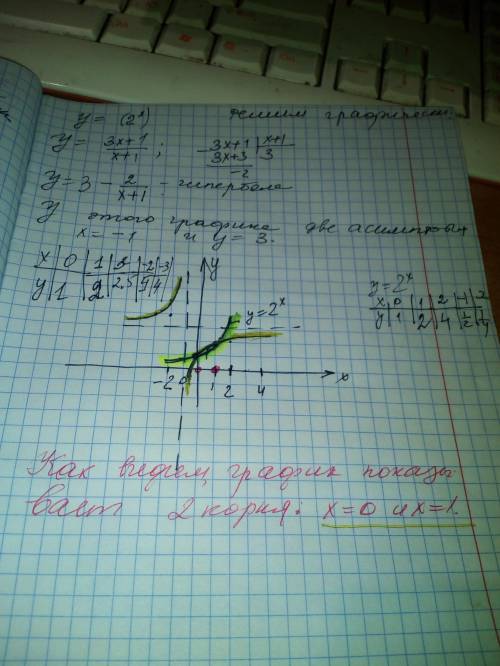 y = (2^x) решим графически
y = (3x+1)/(x+1) ; 3x+1 | x+1
3x+3 | 3
-2
y = 3 - 2/(x+1) - гипербола
У этого графика две асимптоты
x = -1 и y = 3.
x | 0 | 1 | 3 | -2 | -3
y | 1 | 2 | 2,5 | 5 | 4
y
y = 2^x
-2 0 1 2 4 x
y = 2^x
x | 0 | 1 | 2 | -1 | -2
y | 1 | 2 | 4 | 1/2 | 1/4
Как видем, график показы-
вает 2 корня: x=0 и x=1.